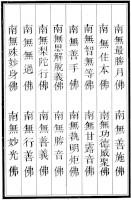 南無最勝月佛
南無善施佛
南無住本佛
南無功德威聚佛
南無智無等佛
南無甘露音佛
南無善手佛
南無執明炬佛
南無思解脫義佛
南無勝音佛
南無梨陀行佛
南無善義佛
南無無過佛
南無行善佛
南無殊妙身佛
南無妙光佛